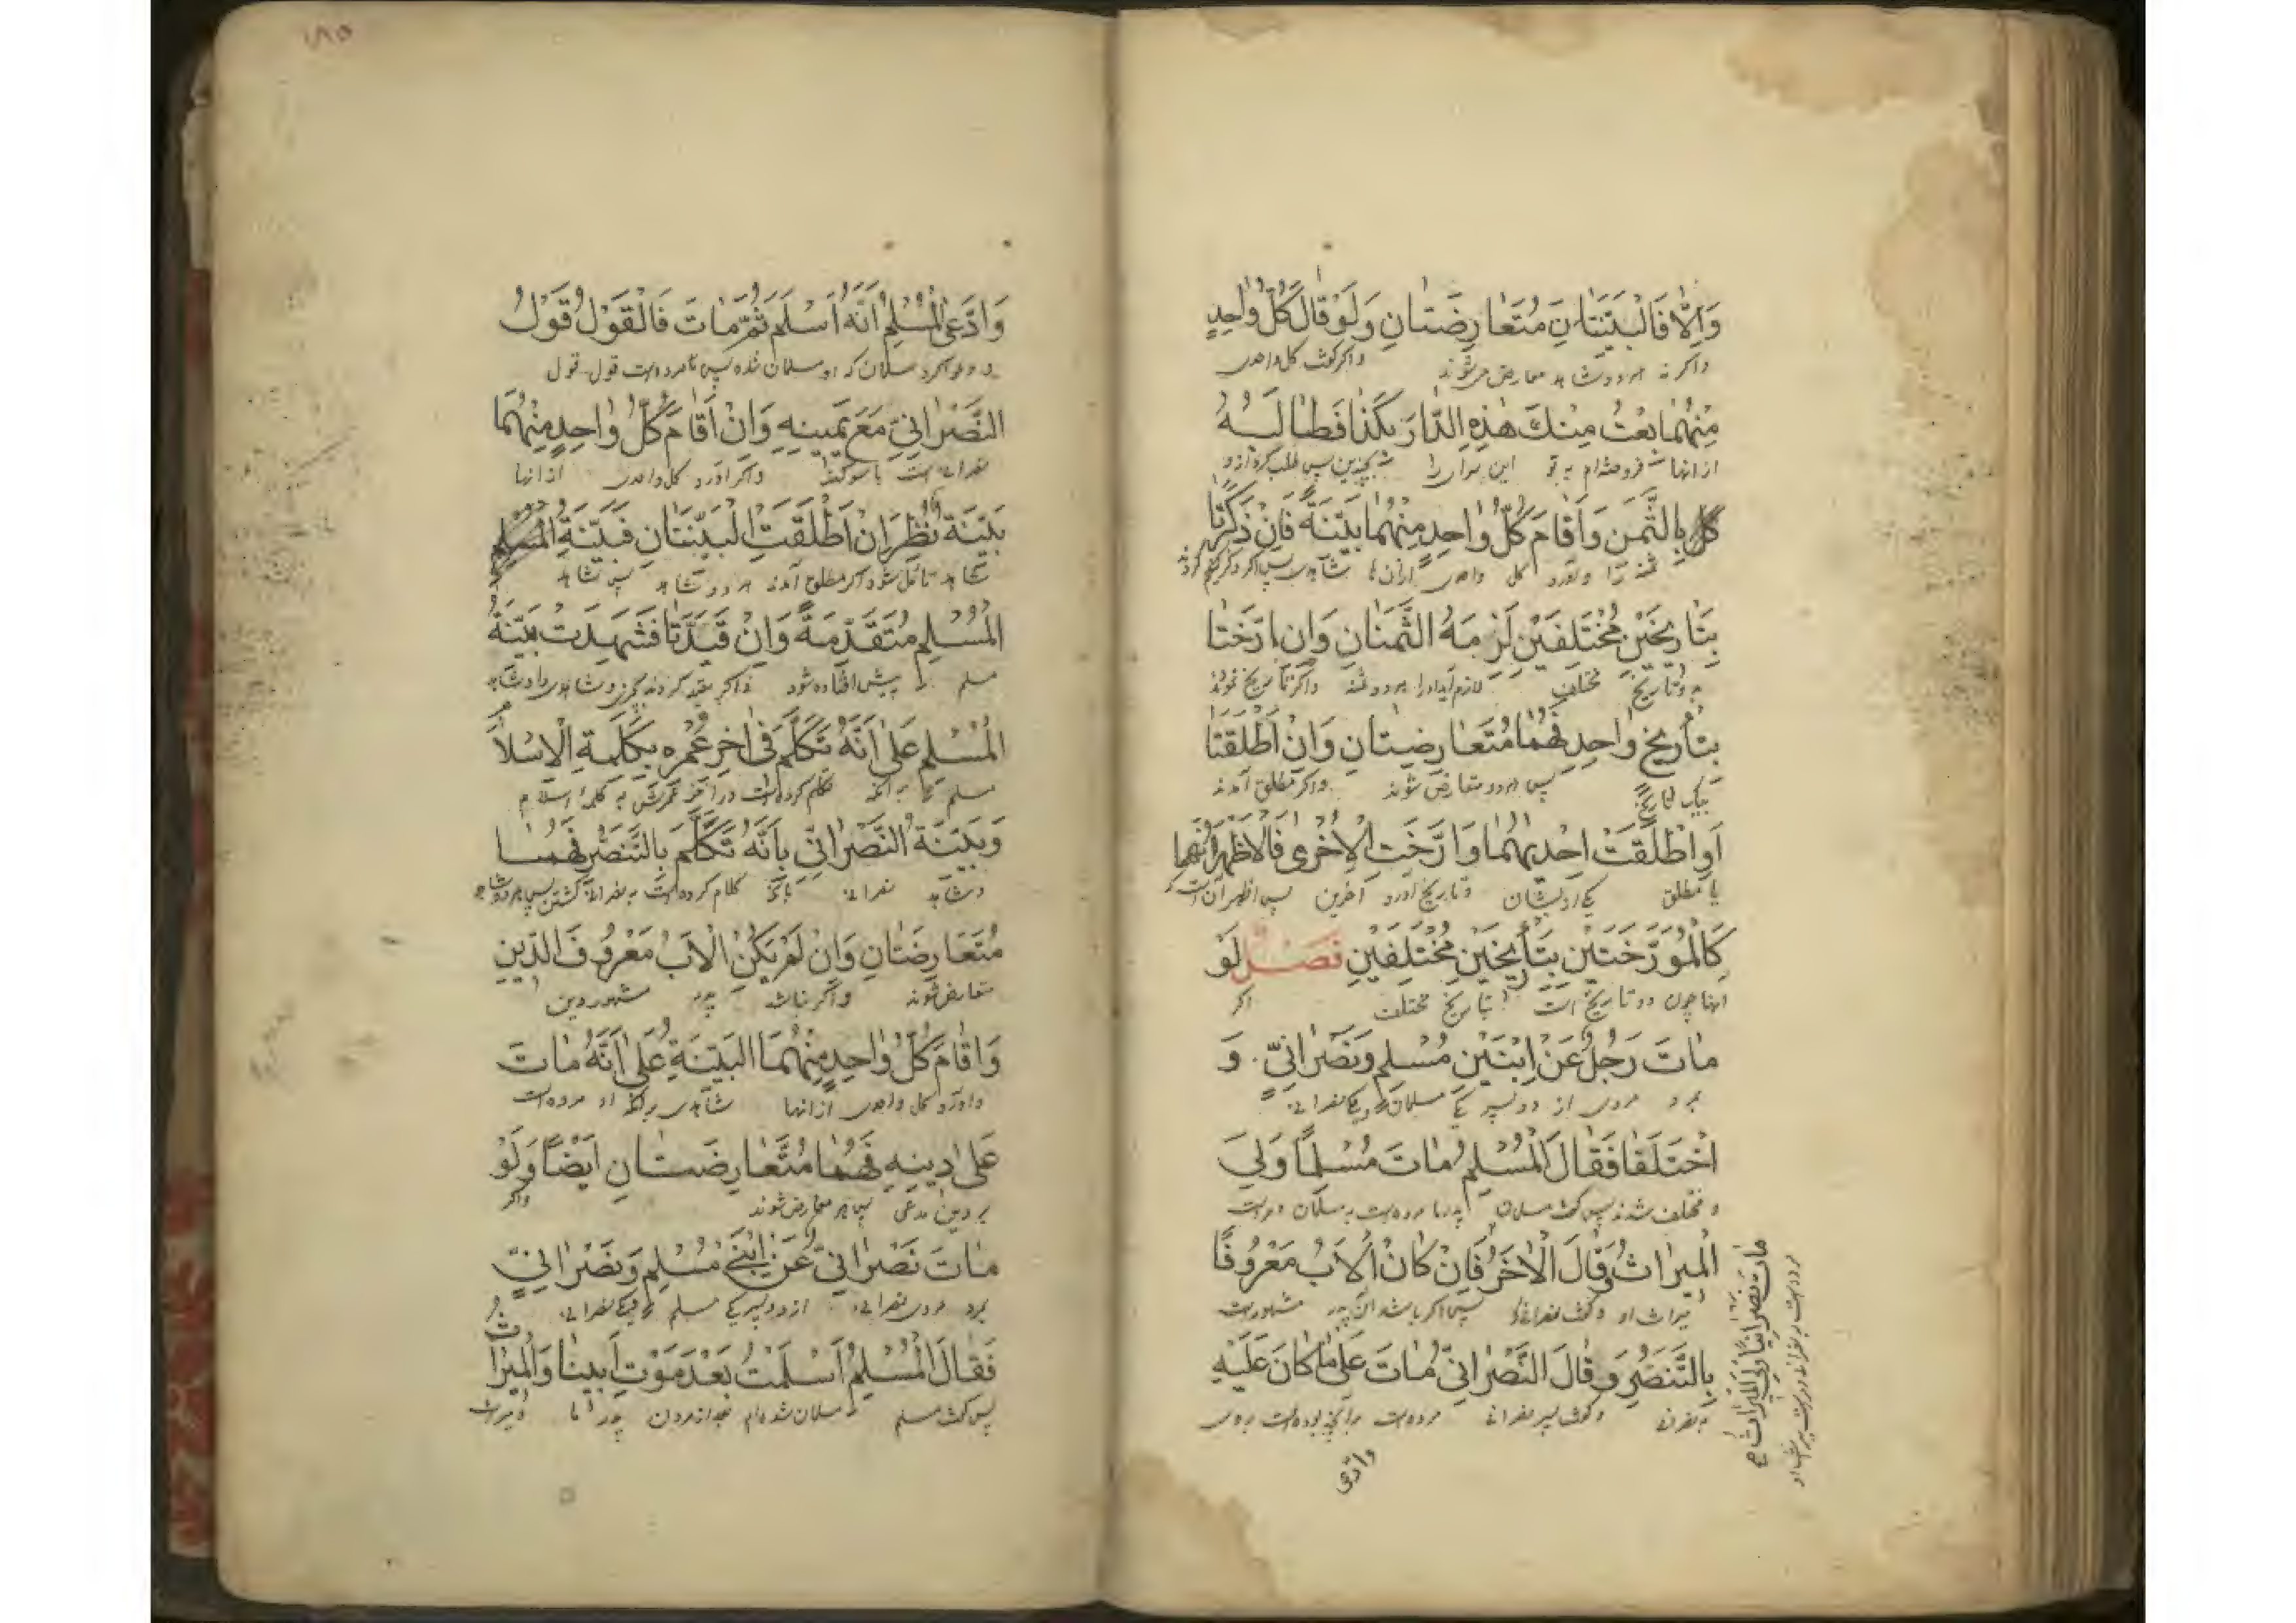 وَاِلَّا فَالْبَيِّنَتَانِ مُتَعَارِضَتَانِ وَلَوْ قَالَ كُلُّ وَاحِدٍ
واکر نه هر دو شاهد معارض میشوند واکر کوید کل واحدی
مِنْهُمَا بِعْتُ مِنْكَ هٰذِهِ الدَّارَ بِكَذَا فَطَالَبَهُ
از انها فروخته‌ام به تو این سرای را بچندین پس طلب کرد ازو
كُلٌّ بِالثَّمَنِ وَاَقَامَ كُلُّ وَاحِدٍ مِنْهُمَا بَيِّنَةً فَاِنْ ذَكَرَتَا
ثمنه را واورد کل واحدی ازان‌ها شاهدی پس اکر ذکر
بِتَارِيخَيْنِ مُخْتَلِفَيْنِ لَزِمَهُ الثَّمَنَانِ وَاِنْ اَرَّخَتَا
به دو تاریخ مختلف لازم آید او را هر دو ثمنه واکر تاریخ نمودند
بِتَأْرِيخٍ وَاحِدٍ فَهُمَا مُتَعَارِضَتَانِ وَاِنْ اَطْلَقَتَا
بیک تاریخ پس هر دو متعارض شوند واکر مطلق آمدند
اَوْ اَطْلَقَتْ اِحْدٰيهُمَا وَاَرَّخَتِ الْاُخْرٰى فَالْاَظْهَرُ اَنَّهُمَا
یا مطلق یکی از ایشان وتاریخ اورد آخرین پس اظهر آن است که
كَالْمُوَرَّخَتَيْنِ بِتَأْرِيخَيْنِ مُخْتَلِفَيْنِ فَصْلٌ لَوْ
انها چون دو تاریخ است بتاریخ مختلف اکر
مَاتَ رَجُلٌ عَنْ اِبْنَيْنِ مُسْلِمٍ وَنَصْرَانِيٍّ وَ
بمرد مردی از دو پسر یکی مسلمان ویکی نصرانی
اخْتَلَفَا فَقَالَ الْمُسْلِمُ مَاتَ مُسْلِمًا وَلِيَ
و مختلف شدند پس کفت مسلمان پدر ما مرده‌است به مسلمان ومر است
الْمِيرَاثُ وَقَالَ الْاٰخَرُ فَاِنْ كَانَ الْاَبُ مَعْرُوفًا
میراث او وکفت نصرانی پس اکر باشد ان پدر مشهور است
بِالتَّنَصُّرِ وَقَالَ النَّصْرَانِيُّ مَاتَ عَلٰى مَا كَانَ عَلَيْهِ
وکفت پسر نصرانی مرده‌است برانچه بوده‌است بروی
وادعی
مَاتَ نَصْرَانِيًّا وَلِيَ الْمِيرَاثُ صح
١٨٥
وَادَّعَى الْمُسْلِمُ اَنَّهُ اَسْلَمَ ثُمَّ مَاتَ فَالْقَوْلُ قَوْلُ
ودعوا کرد مسلمان که او مسلمان شده پس تا مرده‌است قول قول
النَّصْرَانِيِّ مَعَ يَمِينِهِ وَاِنْ اَقَامَ كُلُّ وَاحِدٍ مِنْهُمَا
نصرانی است با سوکند واکر آورد کل واحدی از انها
بَيِّنَةً نُظِرَ اِنْ اَطْلَقَتِ الْبَيِّنَتَانِ فَبَيِّنَةُ الْمُسْلِمِ
شاهد تامل شود اکر مطلق آمدند هر دو شاهد پس شاهد
الْمُسْلِمِ مُتَقَدِّمَةٌ وَاِنْ قَيَّدَتَا فَشَهِدَتْ بَيِّنَةُ
مسلم را پیش افتاده شود واکر بقید کردند
الْمُسْلِمِ عَلٰى اَنَّهُ تَكَلَّمَ فِي اٰخِرِ عُمْرِهِ بِكَلِمَةِ الْاِسْلَامِ
مسلم به آنکه تکلم کرده‌است در آخر عمرش به کلمه اسلام
وَبَيِّنَةُ النَّصْرَانِيِّ بِاَنَّهُ تَكَلَّمَ بِالتَّنَصُّرِ فَهُمَا
وشاهد نصرانی بآنکه کلام کرده‌است به نصرانی کشتن پس هر دو شاهد
مُتَعَارِضَتَانِ وَاِنْ لَمْ يَكُنِ الْاَبُ مَعْرُوفَ الدِّينِ
متعارض شوند واکر نباشد پدر مشهور دین
وَاَقَامَ كُلُّ وَاحِدٍ مِنْهُمَا الْبَيِّنَةَ عَلٰى اَنَّهُ مَاتَ
واورد کل واحدی از انها شاهدی برانکه او مرده‌است
عَلٰى دِينِهِ فَهُمَا مُتَعَارِضَتَانِ اَيْضًا وَلَوْ
بر دین مدعی پس هر معارض شوند واکر
مَاتَ نَصْرَانِيٌّ عَنْ اِبْنَيْ مُسْلِمٍ وَنَصْرَانِيٍّ
بمرد مردی نصرانی از دو پسر یکی مسلم ویکی نصرانی
فَقَالَ الْمُسْلِمُ اَسْلَمْتُ بَعْدَ مَوْتِ اَبِينَا وَالْمِيرَاثُ
پس کفت مسلم مسلمان شده‌ام بعد از مردن پدر ما ومیراث